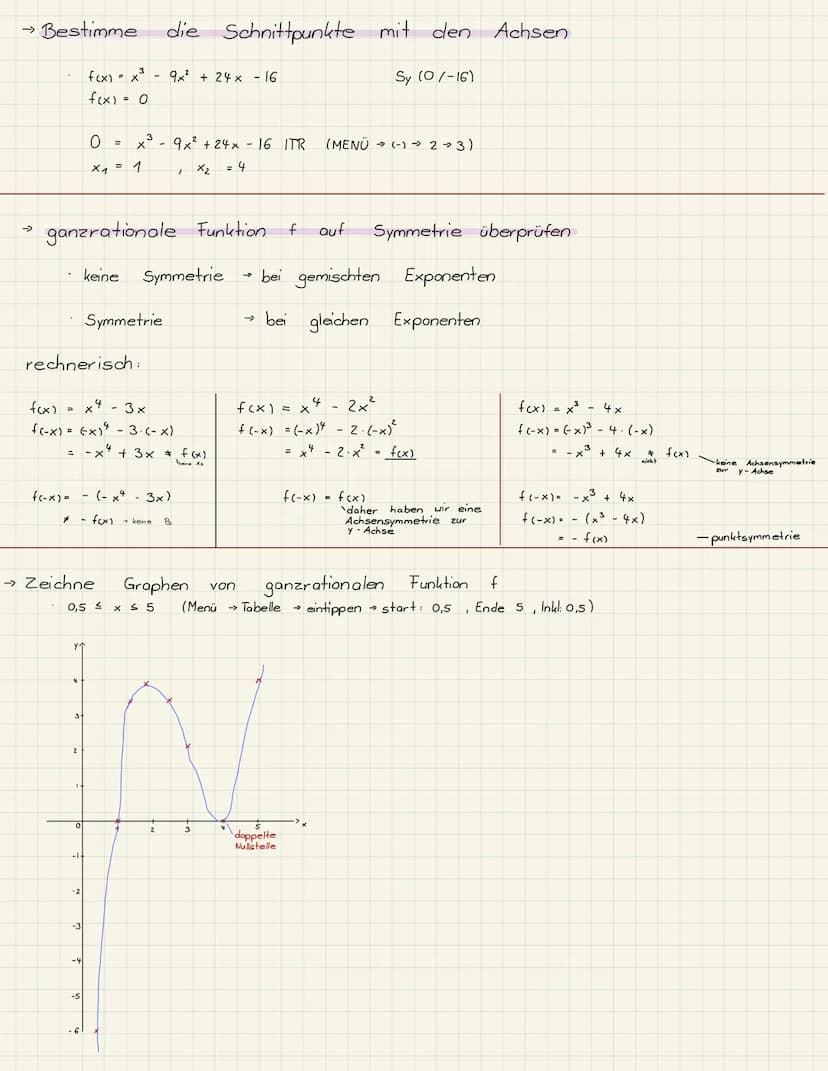 → Bestimme die Schnittpunkte mit den Achsen
· f(x) = x³ - 9x² + 24x - 16 Sy (0/-16)
f(x) = 0
0 = x³ - 9x² + 24x - 16 ITR (MENÜ → (-) → 2 → 3)
x₁ = 1 , x₂ = 4
→ ganzrationale Funktion f auf Symmetrie überprüfen
· keine Symmetrie → bei gemischten Exponenten
· Symmetrie → bei gleichen Exponenten
rechnerisch:
f(x) = x⁴ - 3x
f(-x) = (-x)⁴ - 3·(-x)
= -x⁴ + 3x ≠ f(x)
keine As
f(-x) = - (-x⁴ - 3x)
≠ - f(x) → keine
f(x) = x⁴ - 2x²
f(-x) = (-x)⁴ - 2·(-x)²
= x⁴ - 2·x² = f(x)
f(-x) = f(x)
daher haben wir eine
Achsensymmetrie zur
y-Achse
f(x) = x³ - 4x
f(-x) = (-x)³ - 4·(-x)
= -x³ + 4x ≠ f(x)
nicht
keine Achsensymmetrie
zur y-Achse
f(-x) = -x³ + 4x
f(-x) = - (x³ - 4x)
= - f(x) — punktsymmetrie
→ Zeichne Graphen von ganzrationalen Funktion f
· 0,5 ≤ x ≤ 5 (Menü → Tabelle → eintippen → start: 0,5 , Ende 5 , Inkl: 0,5)
y
4
3
2
1
0 1 2 3 4 5 x
doppelte
Nullstelle
-1
-2
-3
-4
-5
-6